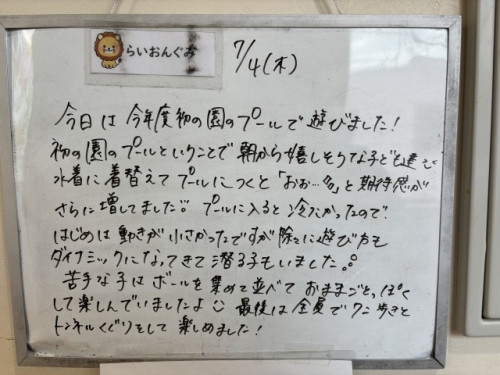 らいおんぐみ
7/4(木)
今日は今年度初の園のプールで遊びました!
初の園のプールということで朝から嬉しそうな子ども達で
水着に着替えてプールにつくと「おぉ…!!」と期待感が
さらに増してました!! プールに入ると冷たかったので
はじめは動きが小さかったですが徐々に遊び方も
ダイナミックになってきて潜る子もいました。
苦手な子はボールを集めて並べておままごとっぽく
して楽しんでいましたよ 最後は全員でワニ歩きと
トンネルくぐりをして楽しめました!